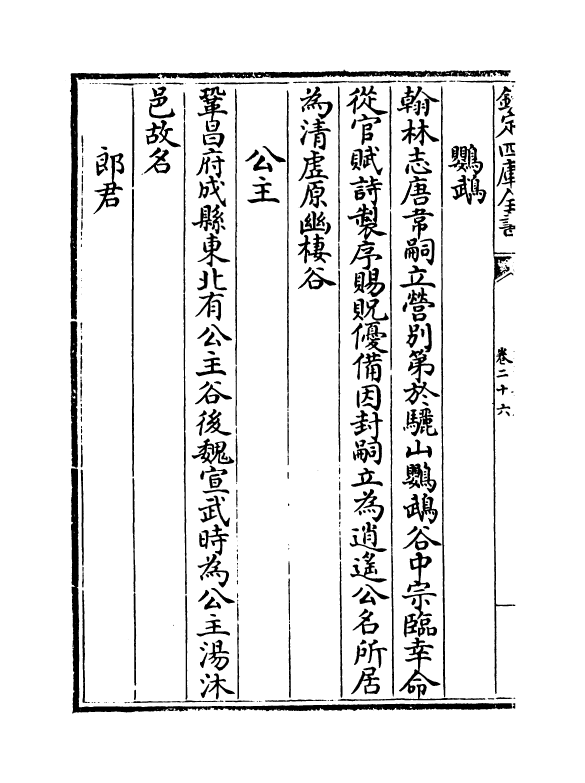 欽定四庫全書
卷二十六
鸚鵡
翰林志唐韋嗣立營别第於驪山鸚鵡谷中宗臨幸命
從官賦詩製序賜貺優備因封嗣立為逍遙公名所居
為清虛原幽棲谷
公主
鞏昌府成縣東北有公主谷後魏宣武時為公主湯沐
邑故名
郎君